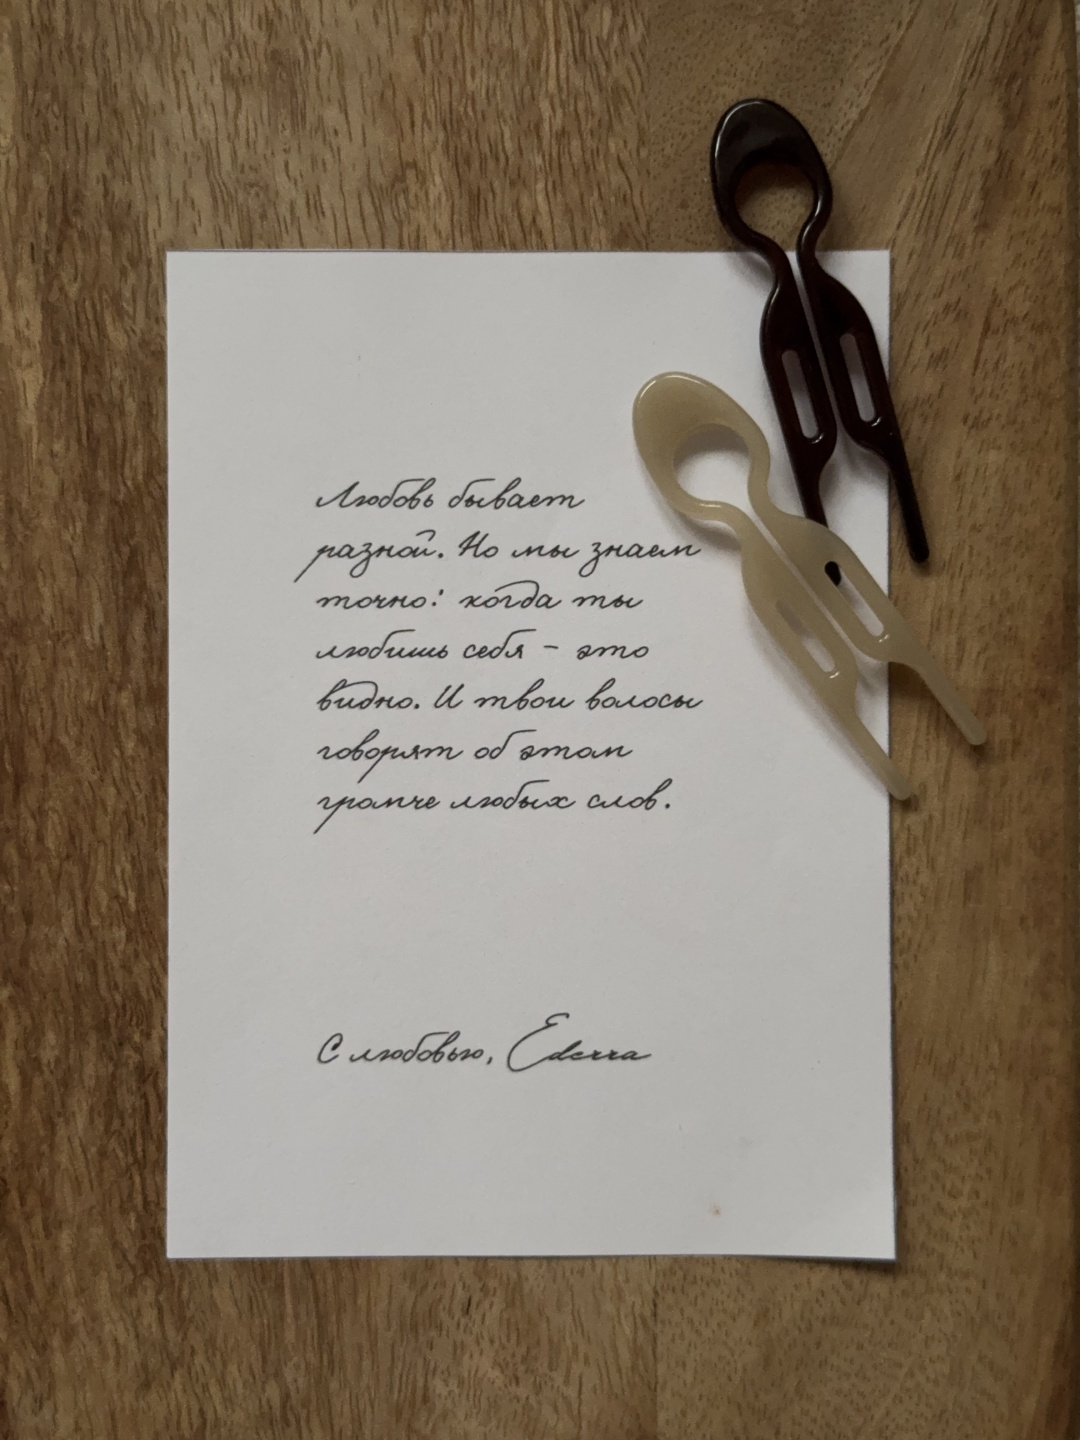 Любовь бывает
разной. Но мы знаем
точно: когда ты
любишь себя - это
видно. И твои волосы
говорят об этом
громче любых слов.
С любовью, Ederra